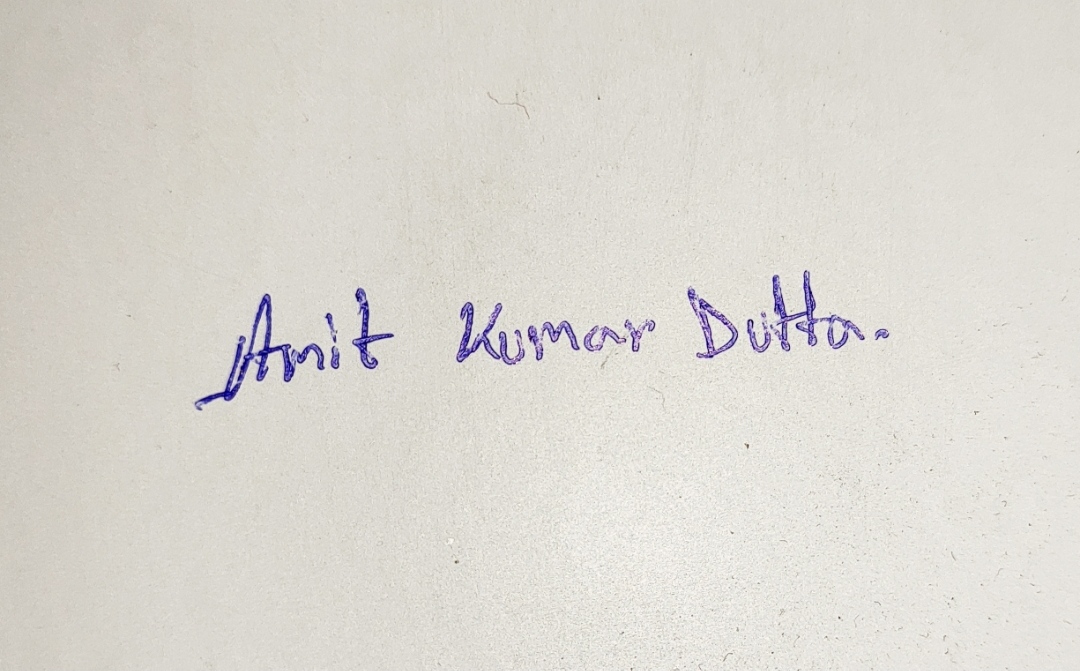 Amit Kumar Dutta.